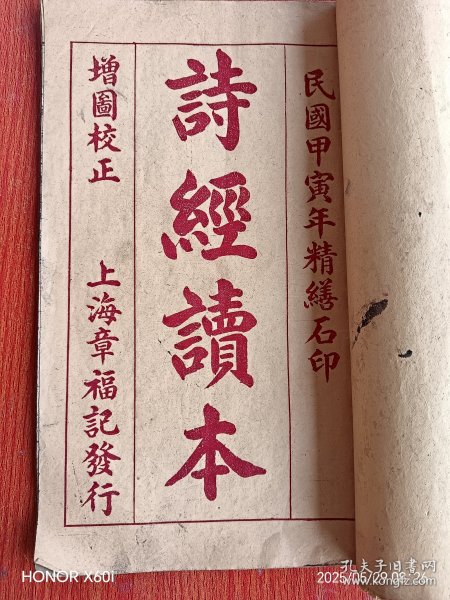 民國甲寅年精繕石印
詩經讀本
增圖校正 上海章福記發行
HONOR X60i
孔夫子旧书网
www.kongfz.com